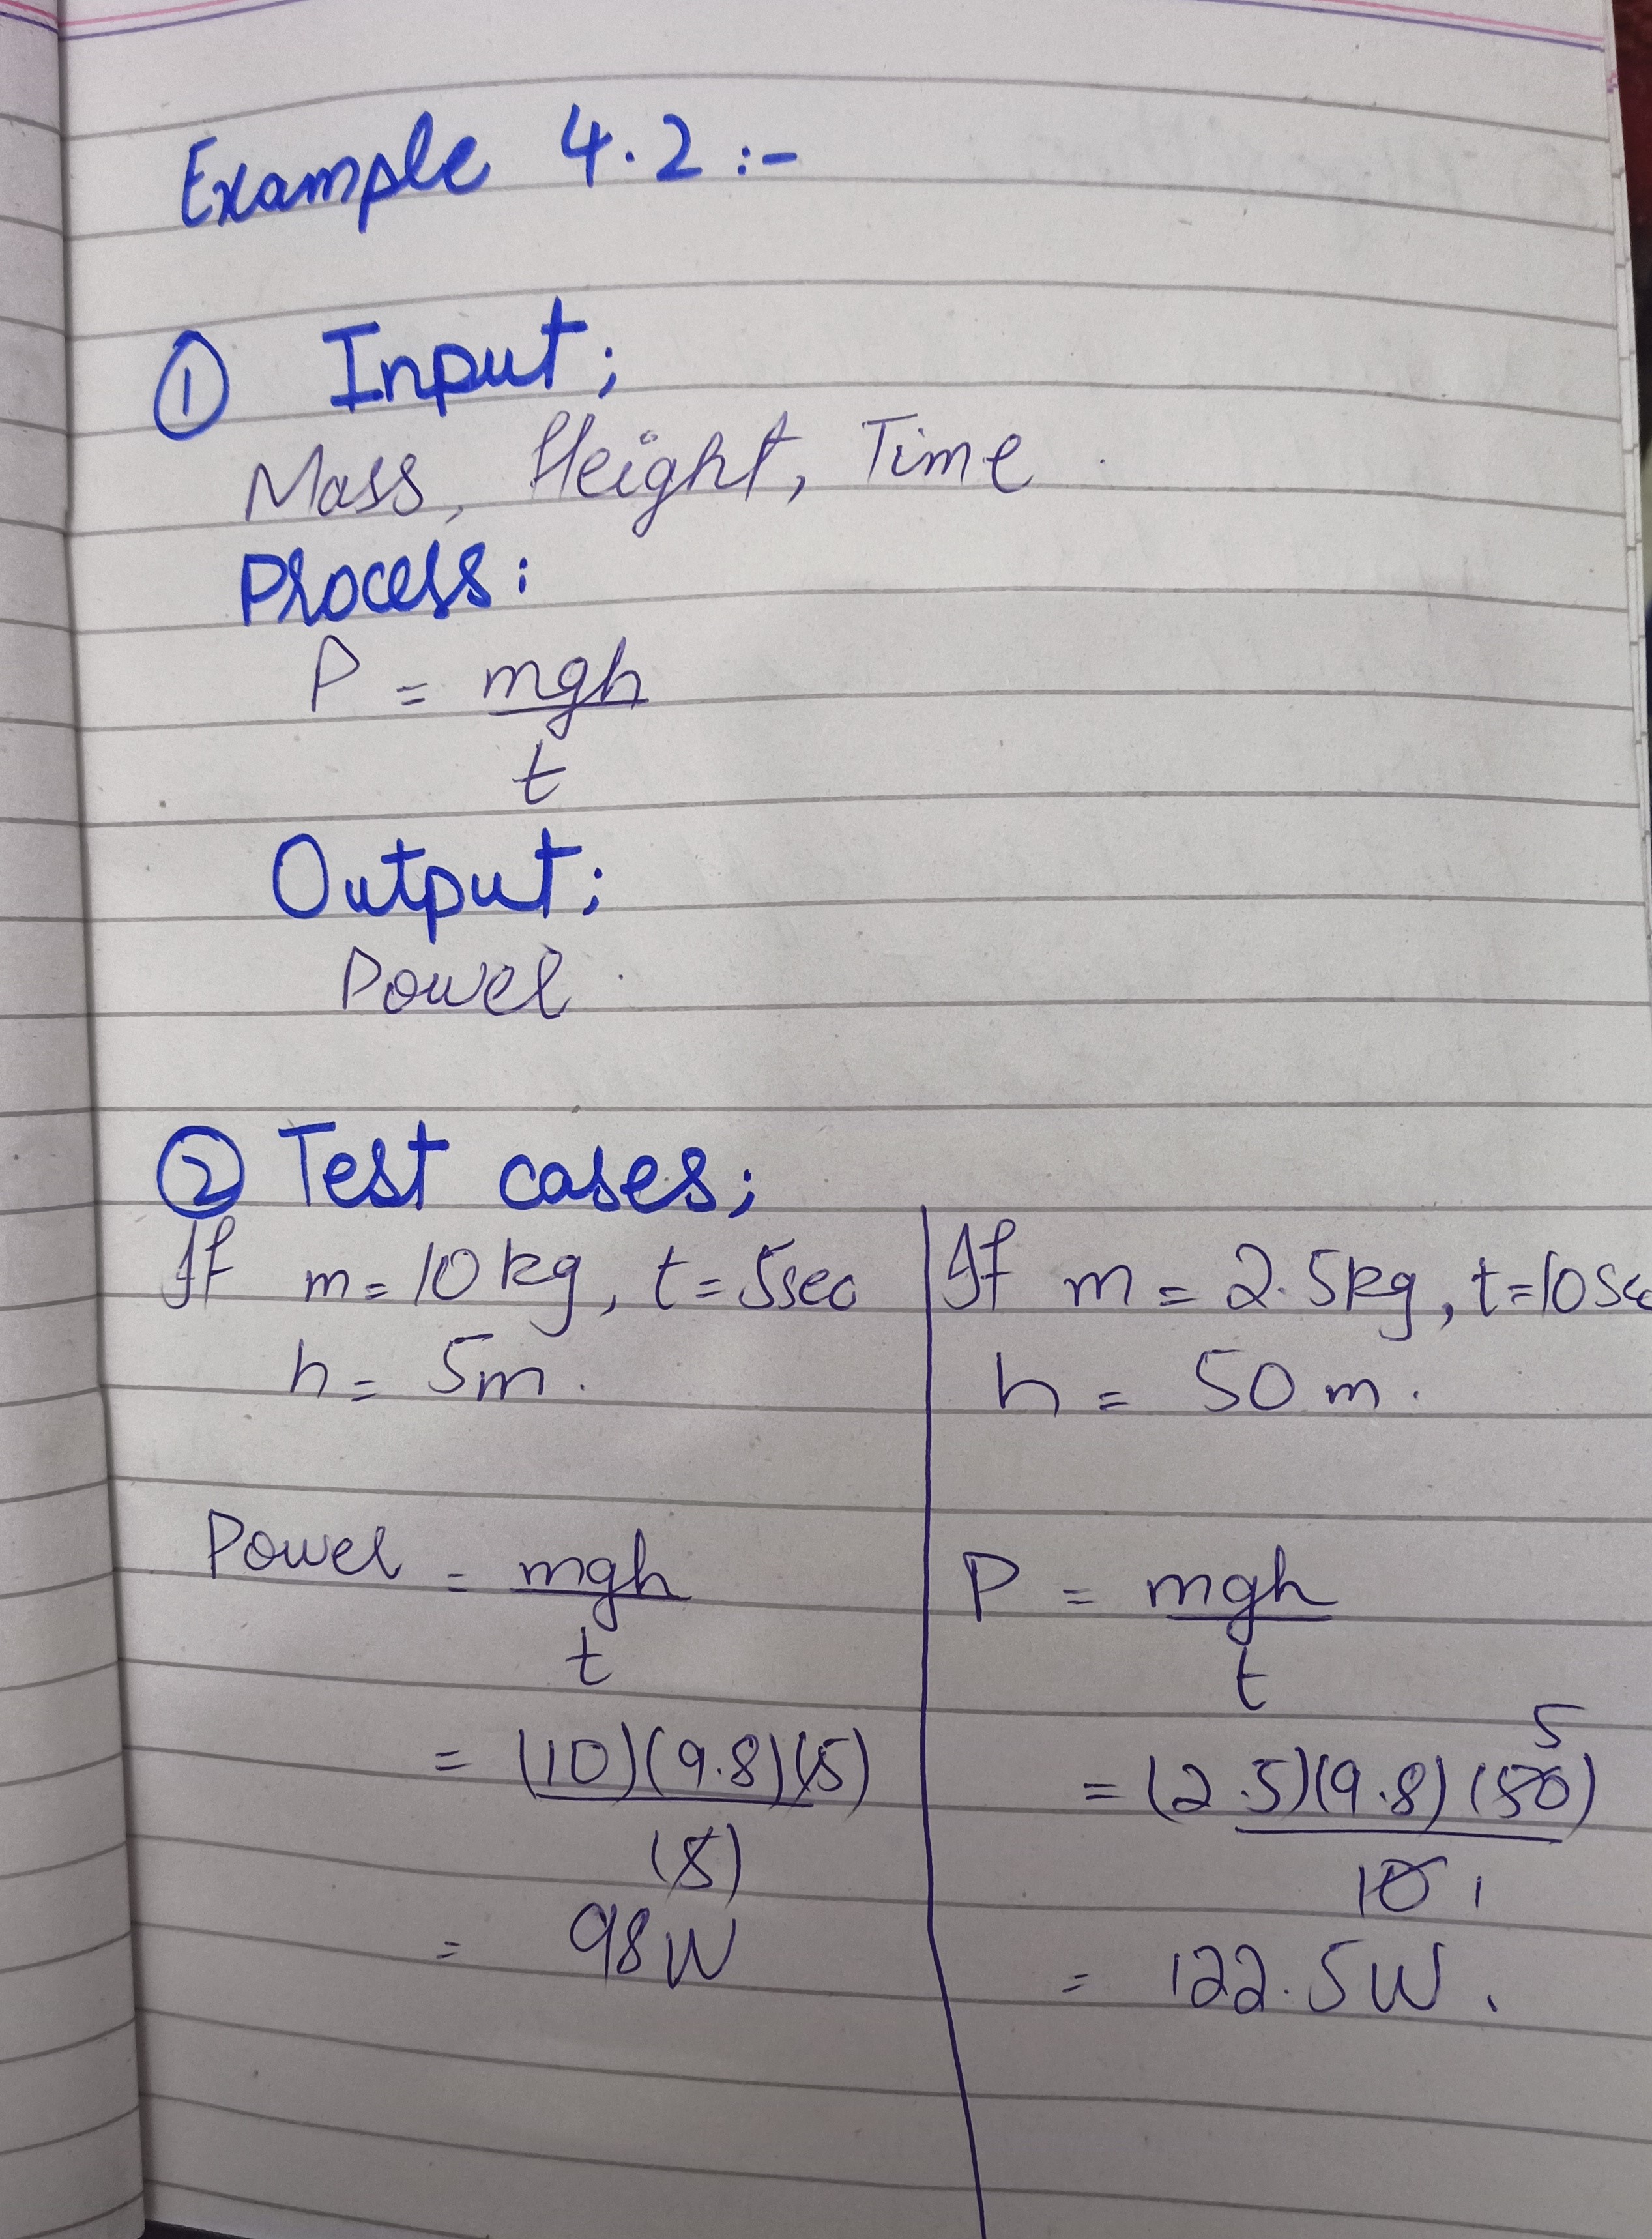 Example 4.2 :-
① Input;
Mass, Height, Time.
Process:
P = mgh
t
Output;
Power.
② Test cases;
If m = 10 kg, t = 5sec
h = 5m.
Power = mgh
t
= (10)(9.8)(5)
(5)
= 98W
If m = 2.5kg, t=10sec
h = 50 m.
P = mgh
t
5
= (2.5)(9.8)(50)
10 1
= 122.5W.